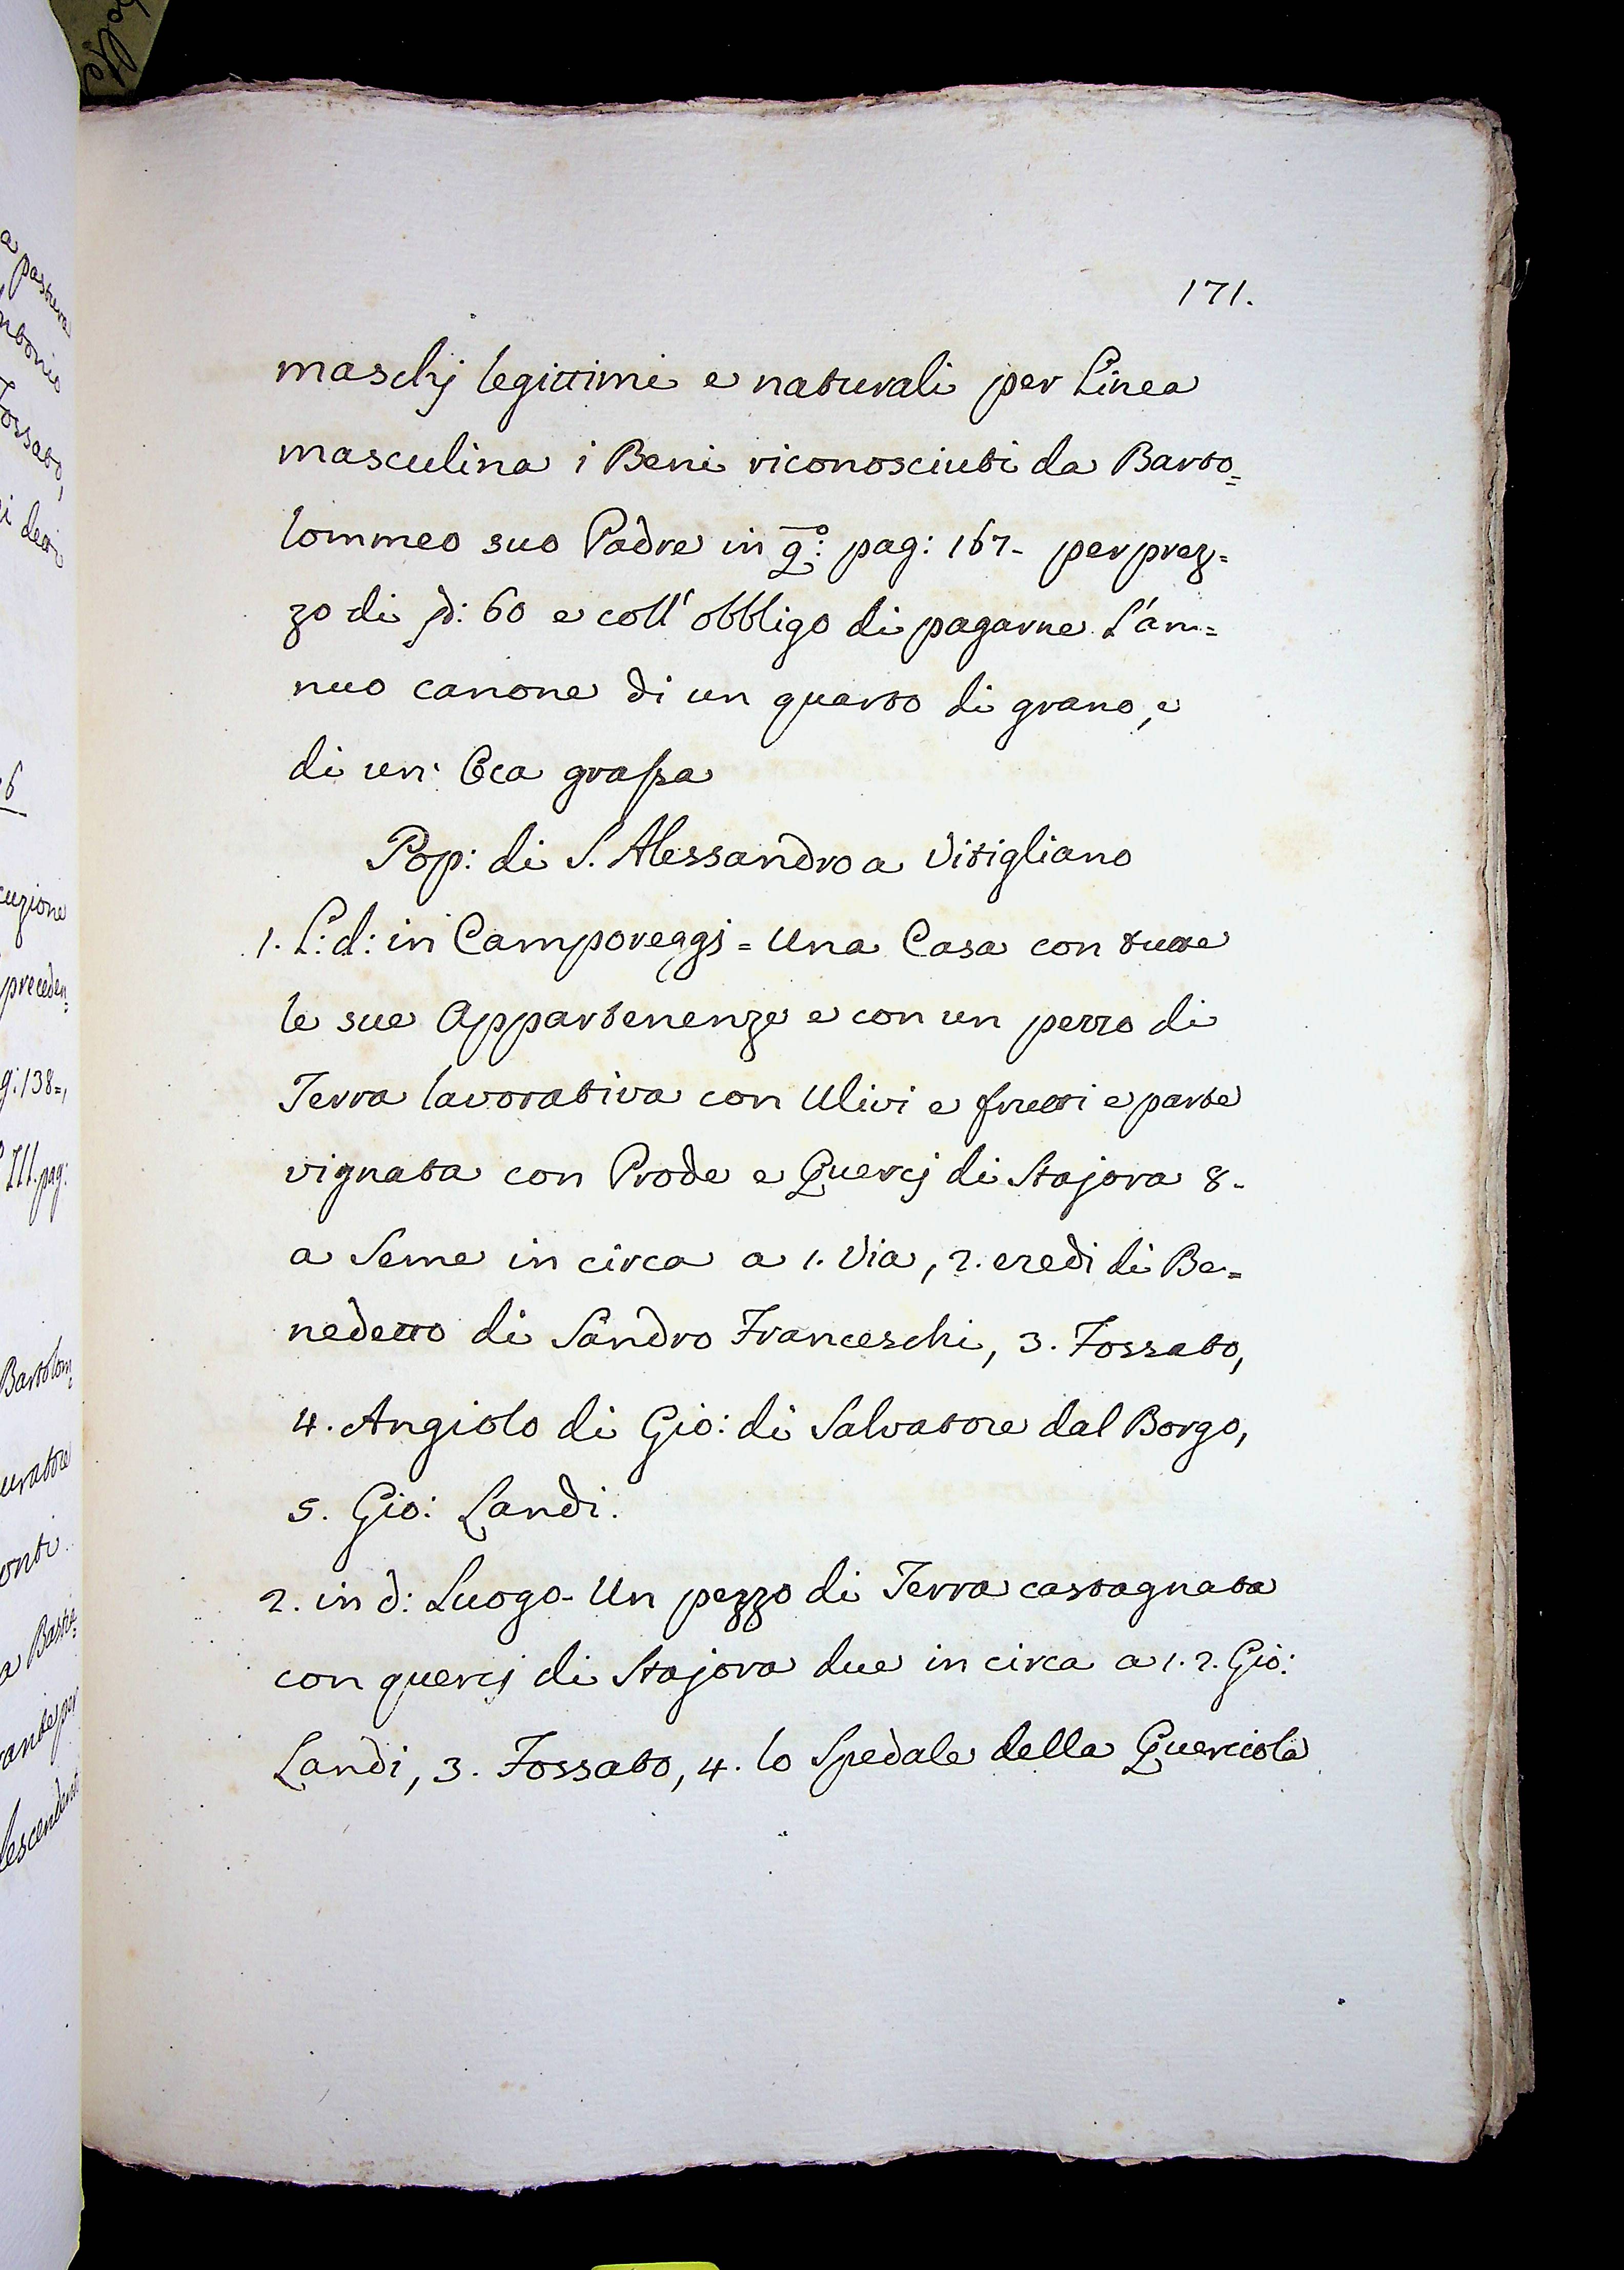 171.
maschj legittimi e naturali per Linea
masculina i Beni riconosciuti da Barto=
lommeo suo Padre in q.º: pag: 167- per prez=
zo di ƒd: 60 e coll' obbligo di pagarne L'an=
nuo canone di un quarto di grano, e
di un' Oca grassa
Pop: di S. Alessandro a Vitigliano
1. L: d: in Camporeggj = Una Casa con tutte
le sue Appartenenze e con un pezzo di
Terra lavorativa con Ulivi e frutti e parte
vignata con Prode e Quercj di Stajora 8-
a Seme in circa a 1. Via, 2. eredi di Be=
nedetto di Sandro Franceschi, 3. Fossato,
4. Angiolo di Gio: di Salvatore dal Borgo,
5. Gio: Landi.
2. in d: Luogo- Un pezzo di Terra castagnata
con quercj di Stajora due in circa a 1. 2. Gio:
Landi, 3. Fossato, 4. lo Spedale della Querciola